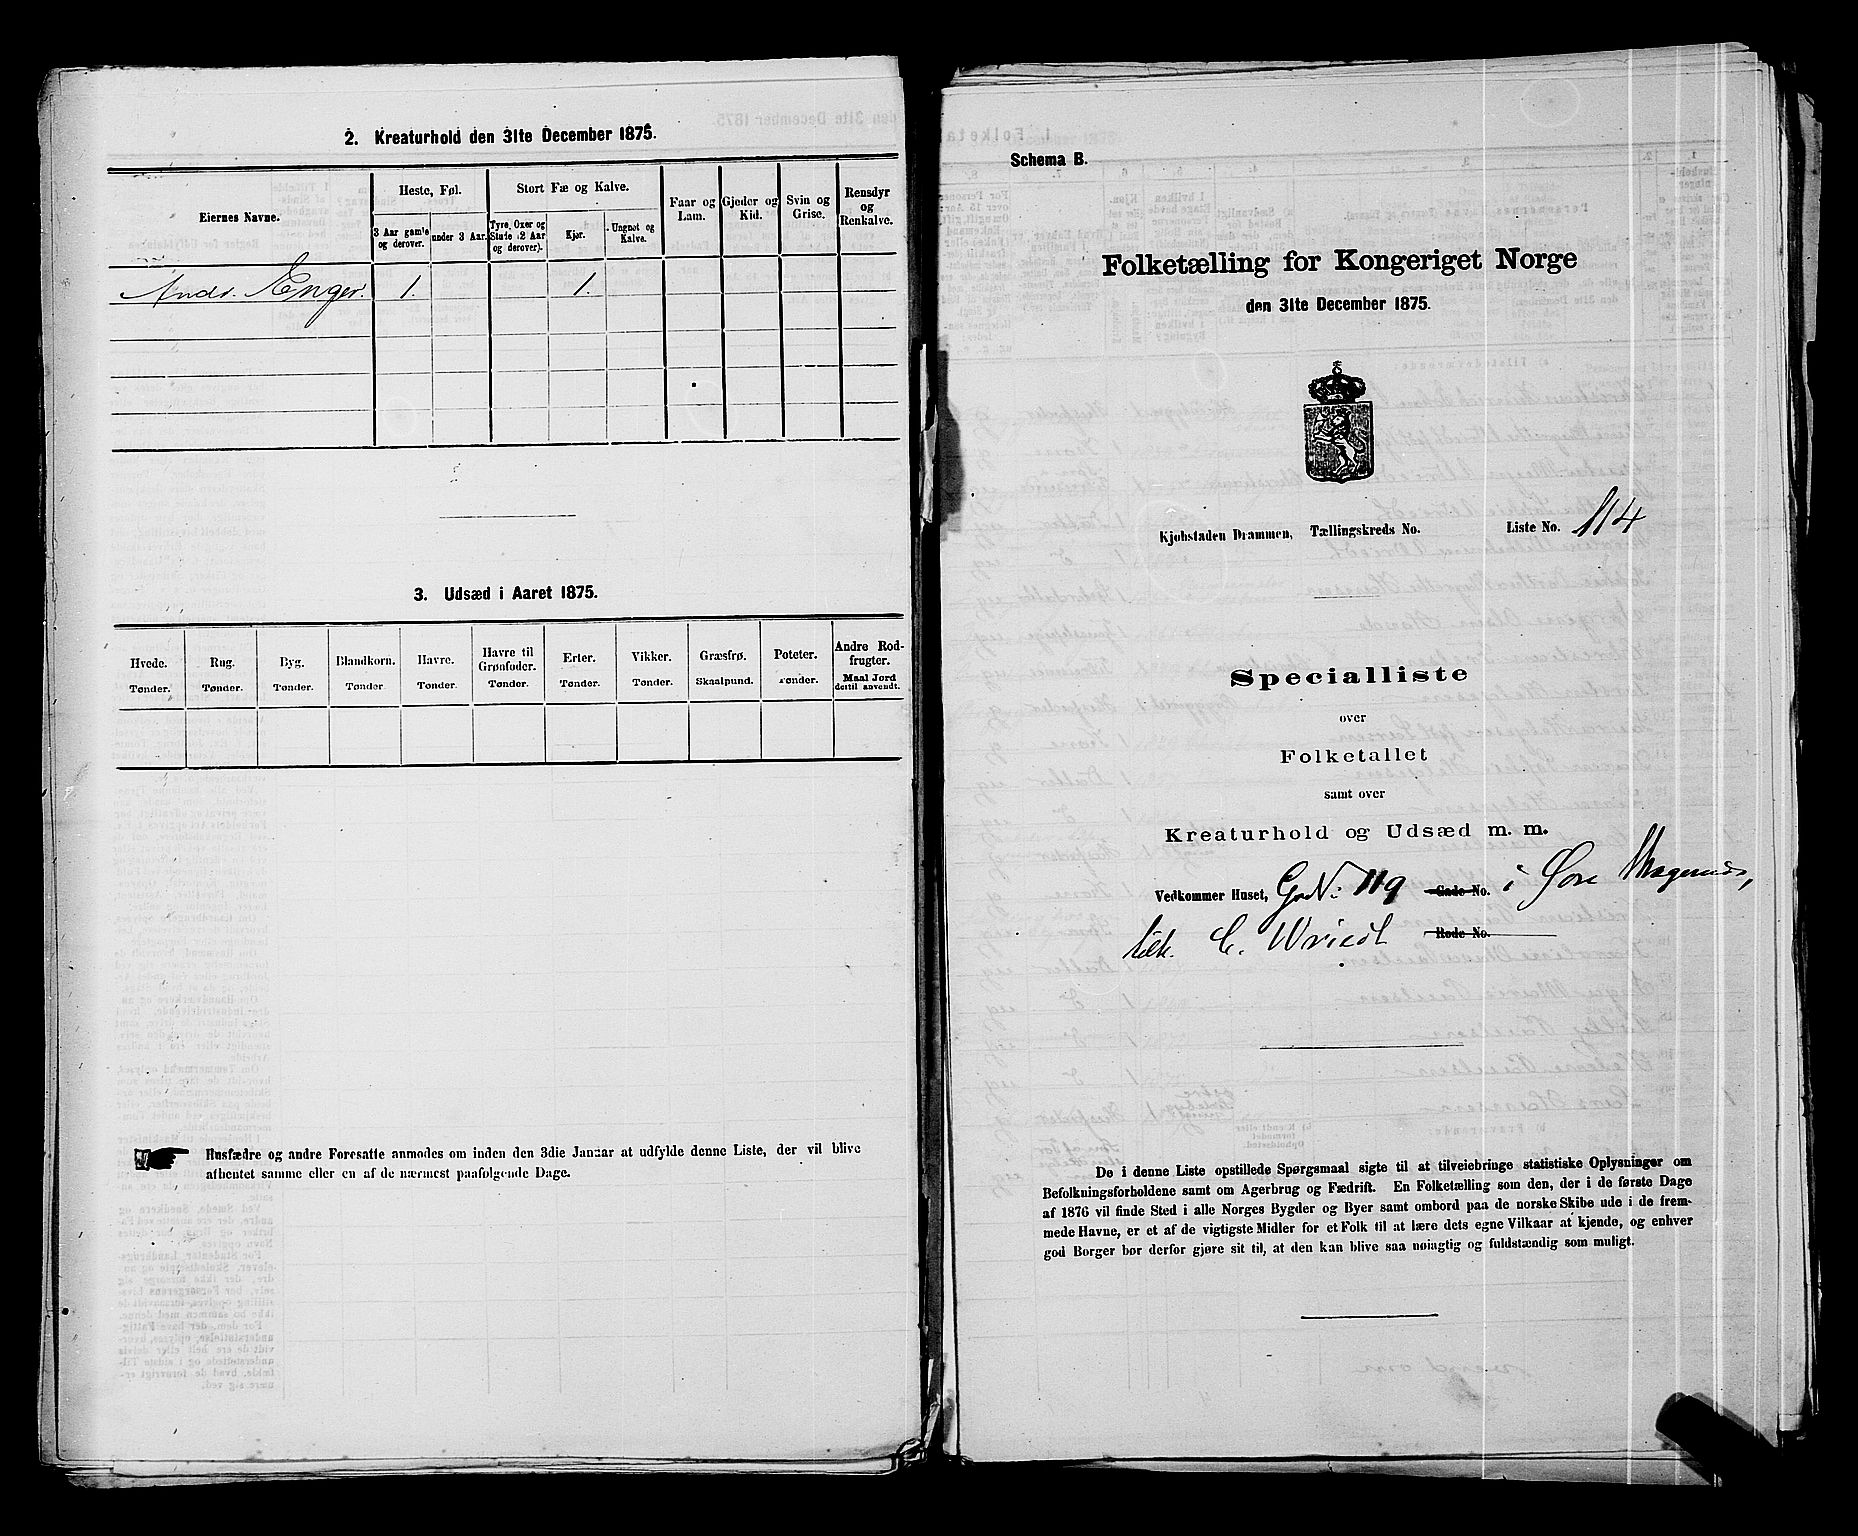 2. Kreaturhold den 31te December 1875.
Eiernes Navne.
Heste, Føl.
3 Aar gamle og derover.
under 3 Aar.
Stort Fæ og Kalve.
Tyre, Oxer og Stude (2 Aar og derover).
Kjør.
Ungnøt og Kalve.
Faar og Lam.
Gjeder og Kid.
Svin og Grise.
Rensdyr og Renkalve.
Andr. Enger. 1. 1.
3. Udsæd i Aaret 1875.
Hvede. Rug. Byg. Blandkorn. Havre. Havre til Grønfoder. Erter. Vikker. Græsfrø. Poteter. Andre Rodfrugter.
Tønder. Tønder. Tønder. Tønder. Tønder. Tønder. Tønder. Tønder. Skaalpund. Tønder. Maal Jord dertil anvendt.
Husfædre og andre Foresatte anmodes om inden den 3die Januar at udfylde denne Liste, der vil blive
afhentet samme eller en af de nærmest paafølgende Dage.
Schema B.
Folketælling for Kongeriget Norge
den 31te December 1875.
Kjøbstaden Drammen, Tællingskreds No. Liste No. 114
Specialliste
over
Folketallet
samt over
Kreaturhold og Udsæd m. m.
Vedkommer Huset, GrdN: 119 Gade No. i Øvre
tilh. C. Wriedt Rode No.
De i denne Liste opstillede Spørgsmaal sigte til at tilveiebringe statistiske Oplysninger om
Befolkningsforholdene samt om Agerbrug og Fædrift. En Folketælling som den, der i de første Dage
af 1876 vil finde Sted i alle Norges Bygder og Byer samt ombord paa de norske Skibe ude i de frem-
mede Havne, er et af de vigtigste Midler for et Folk til at lære dets egne Vilkaar at kjende, og enhver
god Borger bør derfor gjøre sit til, at den kan blive saa nøiagtig og fuldstændig som muligt.